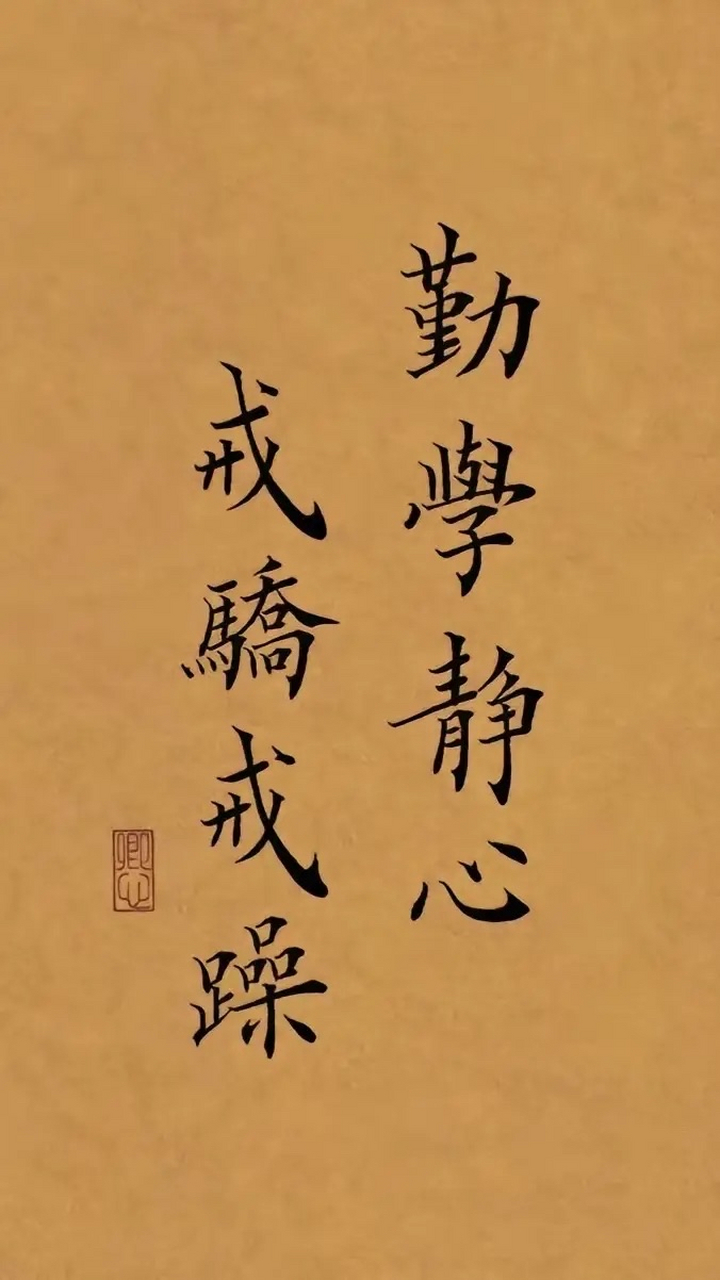 勤學静心
戒驕戒躁
卿心